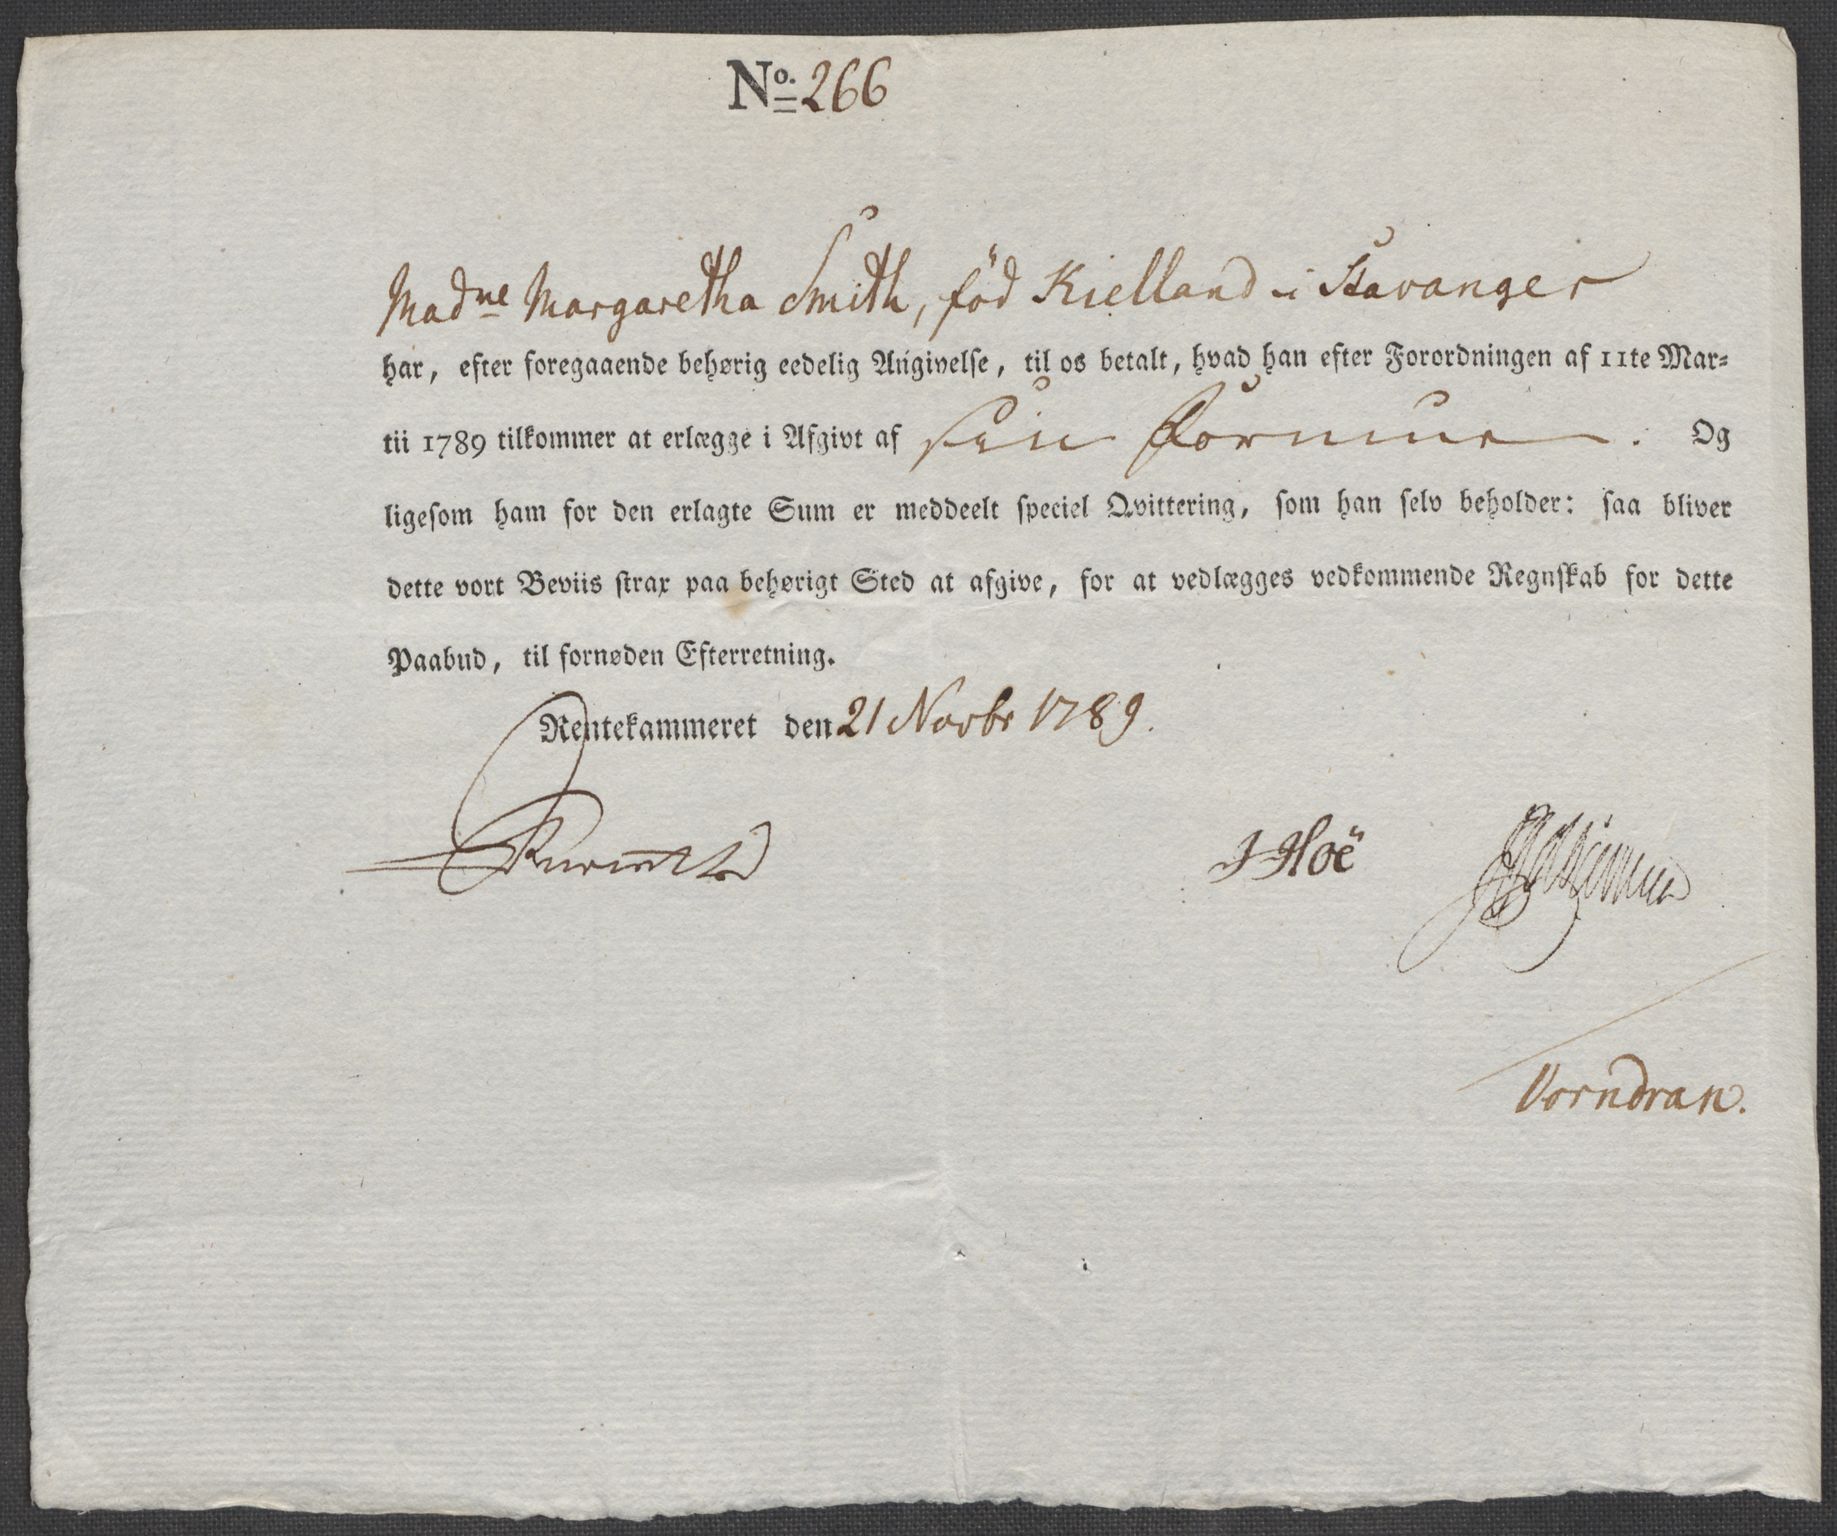 No. 266
Madme Margaretha Smith, föd Kielland i Stavanger
har, efter foregaaende behørig eedelig Angivelse, til os betalt, hvad han efter Forordningen af 11te Mar-
tii 1789 tilkommer at erlægge i Afgivt af sin Formue. Og
ligesom ham for den erlagte Sum er meddeelt speciel Qvittering, som han selv beholder: saa bliver
dette vort Beviis strax paa behørigt Sted at afgive, for at vedlægges vedkommende Regnskab for dette
Paabud, til fornøden Efterretning.
Rentekammeret den 21 Novbr 1789.
J Hoë
Vorndran.